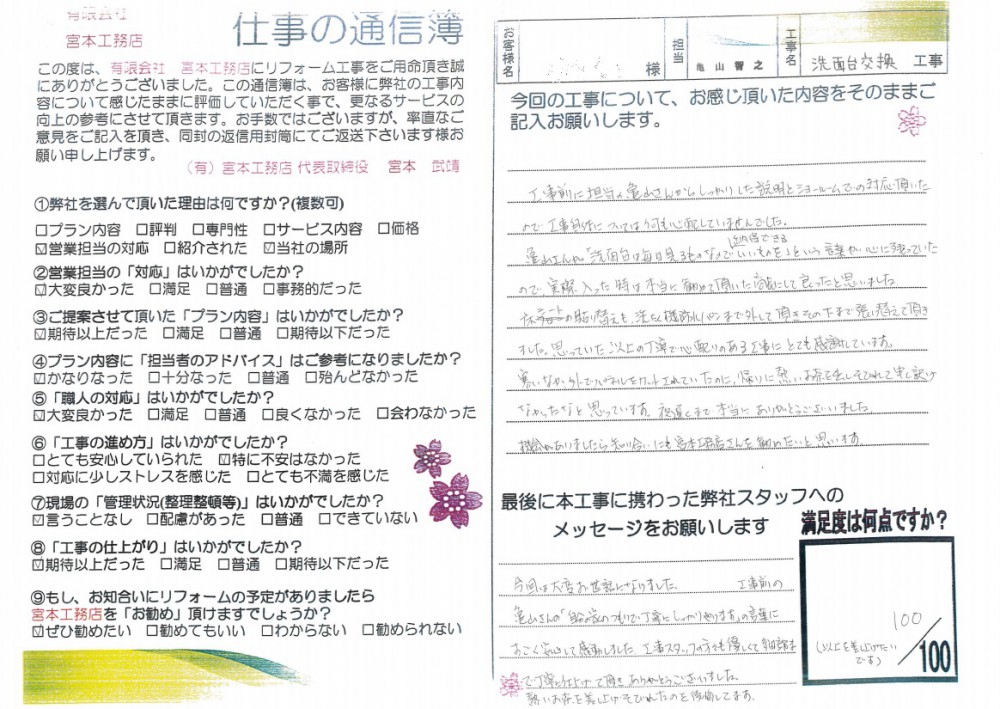 有限会社
宮本工務店
仕事の通信簿
この度は、有限会社 宮本工務店にリフォーム工事をご用命頂き誠
にありがとうございました。この通信簿は、お客様に弊社の工事内
容について感じたままに評価していただく事で、更なるサービスの
向上の参考にさせて頂きます。お手数ではございますが、率直なご
意見をご記入を頂き、同封の返信用封筒にてご返送下さいます様お
願い申し上げます。
(有)宮本工務店 代表取締役 宮本 武靖
①弊社を選んで頂いた理由は何ですか?(複数可)
□プラン内容 □評判 □専門性 □サービス内容 □価格
☑営業担当の対応 □紹介された ☑当社の場所
②営業担当の「対応」はいかがでしたか?
☑大変良かった □満足 □普通 □事務的だった
③ご提案させて頂いた「プラン内容」はいかがでしたか?
☑期待以上だった □満足 □普通 □期待以下だった
④プラン内容に「担当者のアドバイス」はご参考になりましたか?
☑かなりなった □十分なった □普通 □殆んどなかった
⑤「職人の対応」はいかがでしたか?
☑大変良かった □満足 □普通 □良くなかった □会わなかった
⑥「工事の進め方」はいかがでしたか?
□とても安心していられた ☑特に不安はなかった
□対応に少しストレスを感じた □とても不満を感じた
⑦現場の「管理状況(整理整頓等)」はいかがでしたか?
☑言うことなし □配慮があった □普通 □できていない
⑧「工事の仕上がり」はいかがでしたか?
☑期待以上だった □満足 □普通 □期待以下だった
⑨もし、お知合いにリフォームの予定がありましたら
宮本工務店を「お勧め」頂けますでしょうか?
☑ぜひ勧めたい □勧めてもいい □わからない □勧められない
お客様名 様 担当 亀山智之 工事名 洗面台交換 工事
今回の工事について、お感じ頂いた内容をそのままご
記入お願いします。
工事前に担当の亀山さんからしっかりした説明とショールームでの対応頂いた
ので工事自体については何も心配していませんでした。
亀山さんが「洗面台は毎日見るものなので納得できるいいものを」という言葉が心に残っていた
ので実際入った時は本当に勧めて頂いた商品にして良かったと思いました。
の貼り替えも、洗たく機外して頂きその下まで張り替えて頂き
ました。思っていた以上の丁寧で心配りのある工事にとても感謝しています。
寒いなか外でパネルをカットされていたのに、帰りに熱いお茶を
なかったなと思っています。夜遅くまで本当にありがとうございました。
機会がありましたら知り合いにも宮本工務店さんを勧めたいと思います
最後に本工事に携わった弊社スタッフへの
メッセージをお願いします
今回は大変お世話になりました。 工事前の
亀山さんの「自分の家のつもりで丁寧にしっかりやります」の言葉に
すごく安心して感動しました。工事スタッフの方も優しくて
で丁寧に仕上げて頂きありがとうございました。
熱いお茶を差上げそびれたのを後悔してます。
満足度は何点ですか?
100
/100
(以上を差上げたいです)